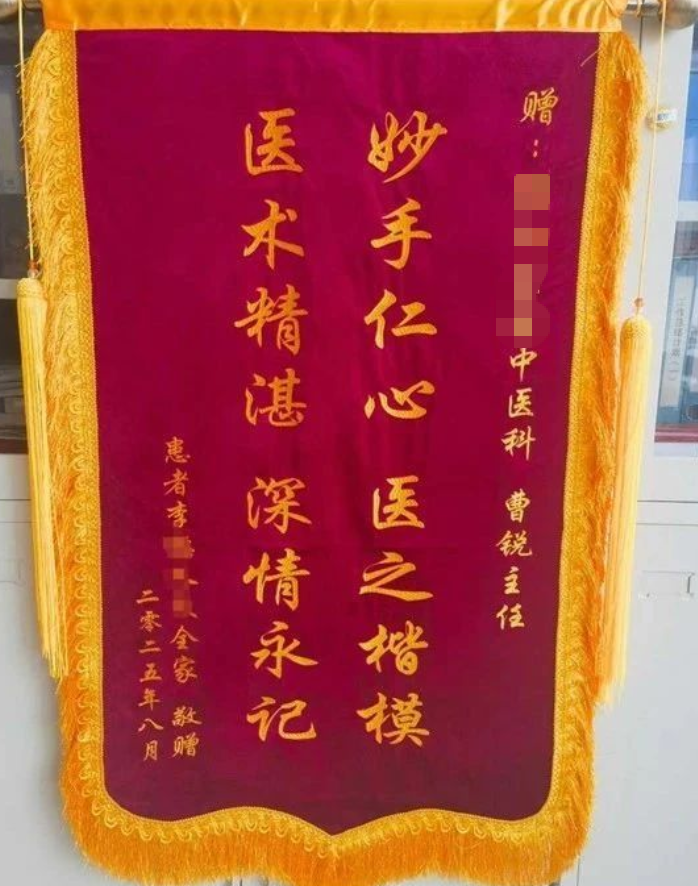 赠：中医科 曹锐主任
妙手仁心 医之楷模
医术精湛 深情永记
患者李全家 敬赠
二零二五年八月